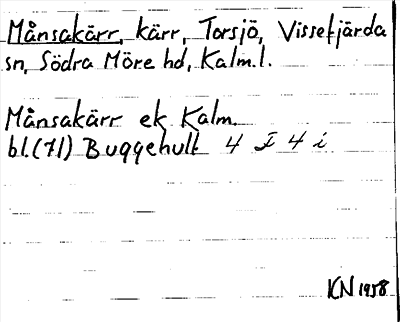 Månsakärr, kärr, Torsjö, Vissefjärda
sn, Södra Möre hd, Kalm.l.
Månsakärr ek Kalm.
bl.(71) Buggehult 4 I 4 i
KN 1958